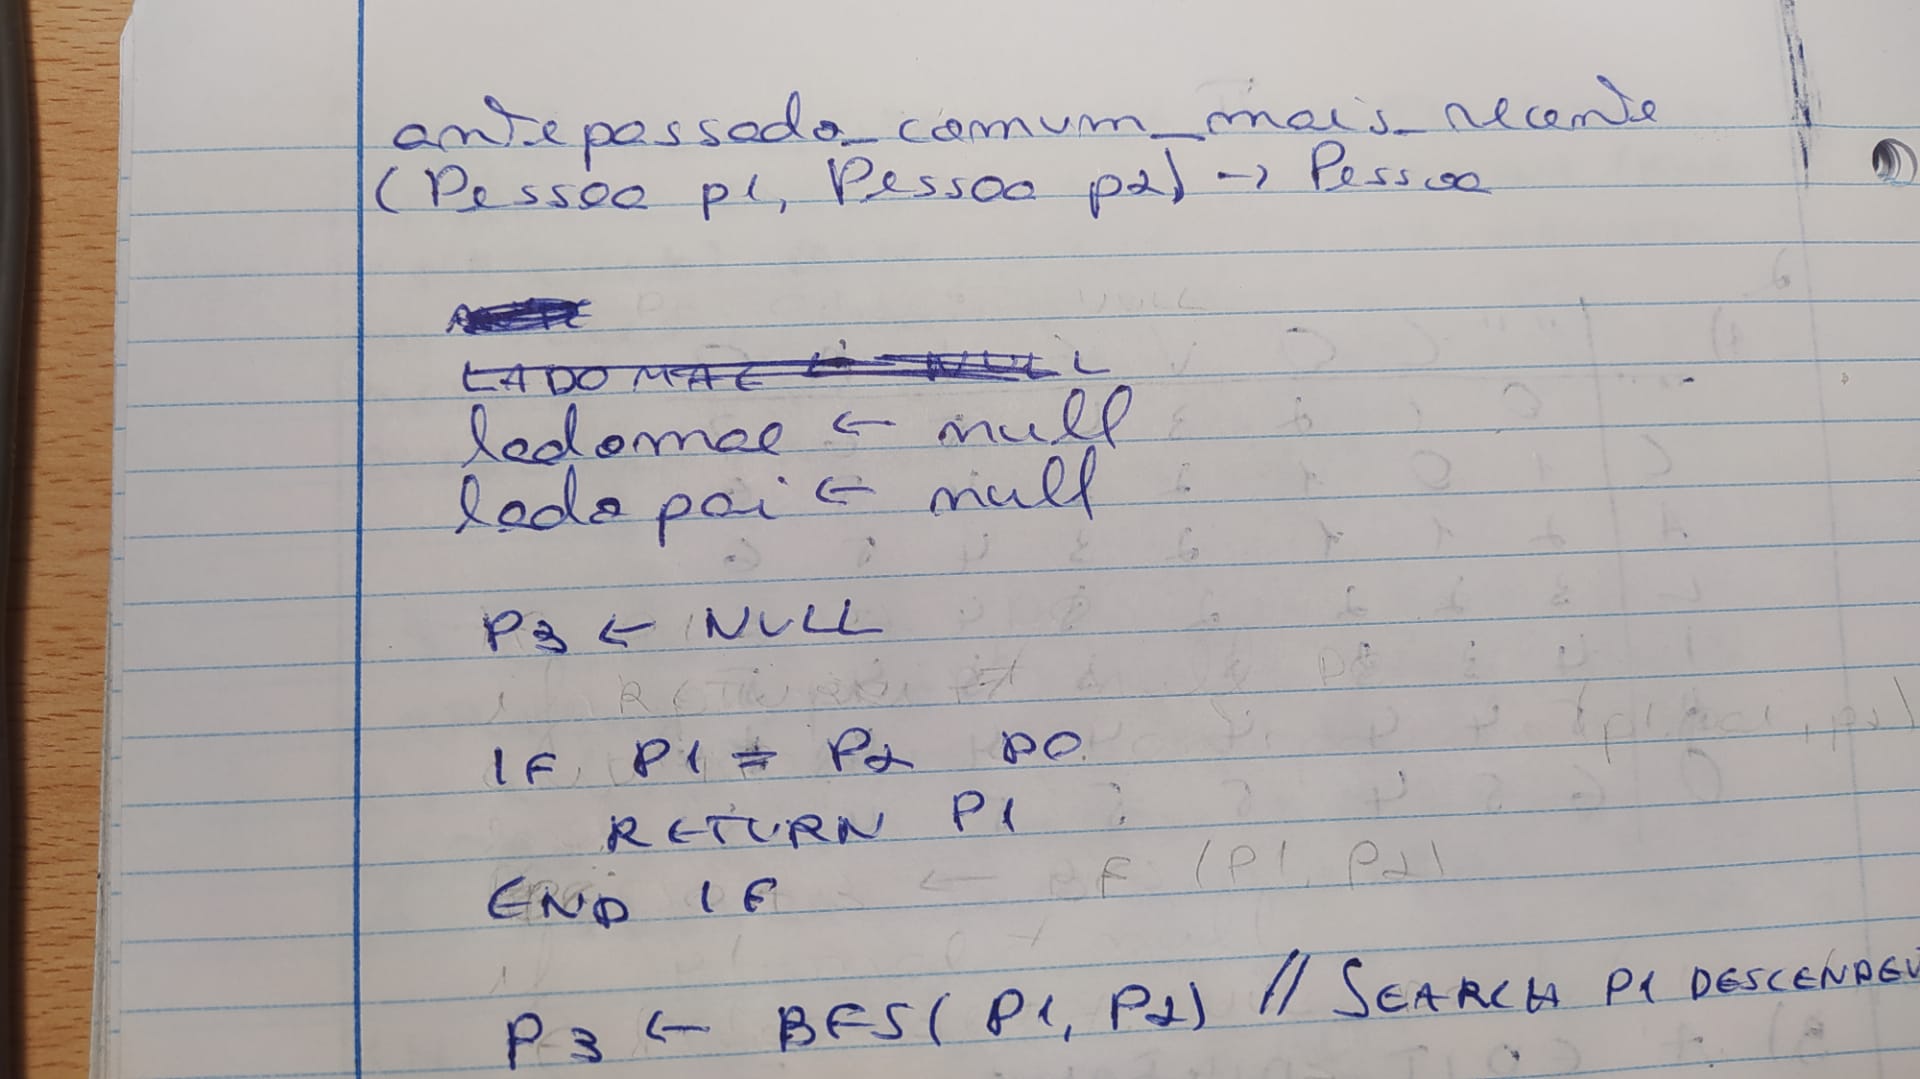 antepassado_comum_mais_recente
(Pessoa p1, Pessoa p2) -> Pessoa
LADO MAE ← NULL
ladomae ← null
ladopai ← null
P3 ← NULL
IF P1 = P2 DO
RETURN P1
END IF
P3 ← BFS( P1, P2) // SEARCH P1 DESCENDEN